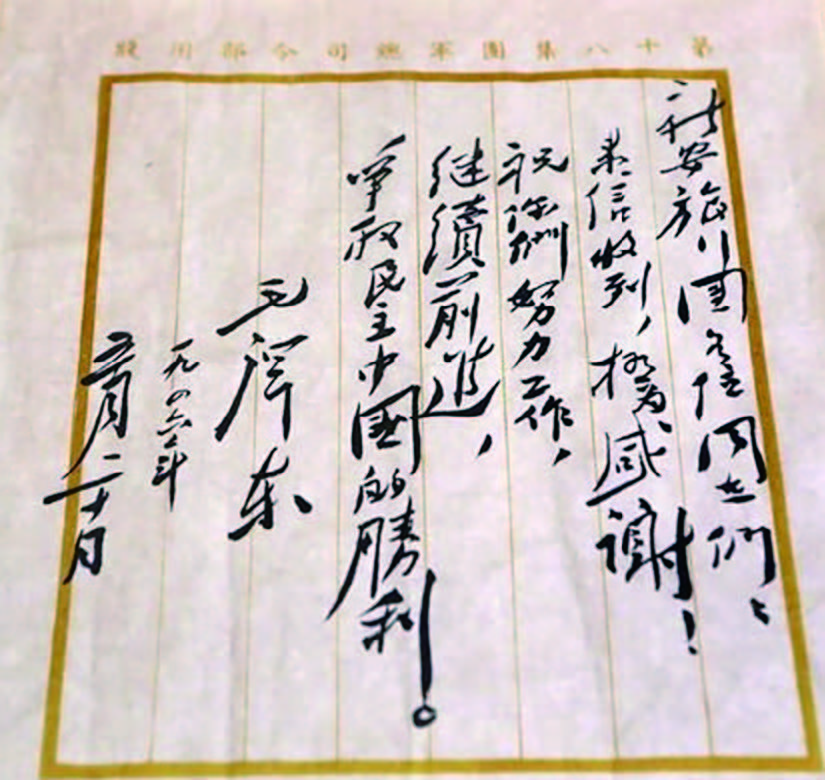 第十八集團軍總司令部用箋
新安旅行團各位同志們：
来信收到，極為感謝！
祝你們努力工作，
继續前進，
爭取民主中國的勝利。
毛澤东
一九四六年
五月二十日